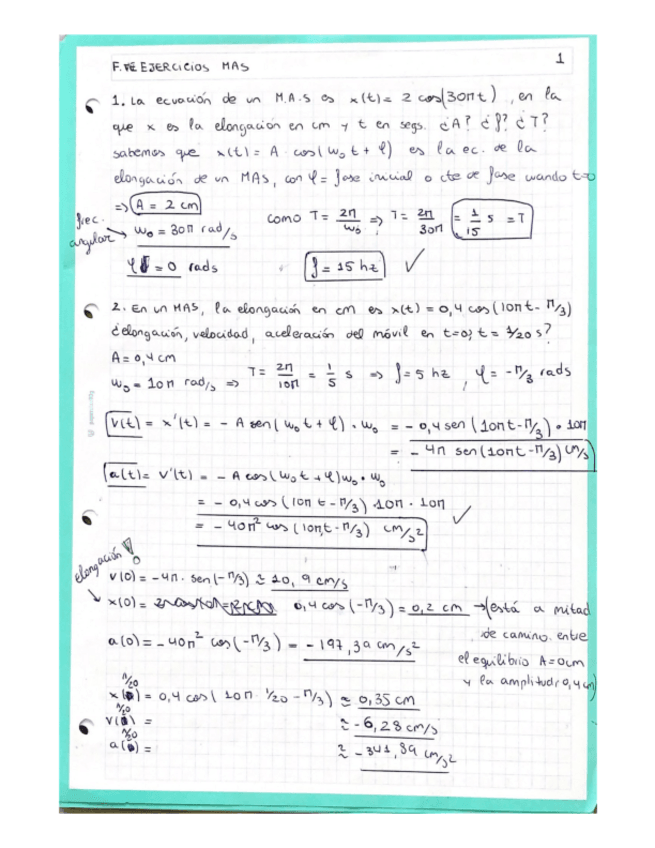 F. FE EJERCICIOS MAS 1
1. La ecuación de un M.A.S es x(t) = 2 cos(30πt), en la
que x es la elongación en cm y t en segs. ¿A? ¿f? ¿T?
sabemos que x(t) = A · cos(ω₀t + φ) es la ec. de la
elongación de un MAS, con φ = fase inicial o cte de fase cuando t=0
=> A = 2 cm
frec. angular → ω₀ = 30π rad/s
como T = 2π/ω₀ => T = 2π/30π = 1/15 s = T
φ = 0 rads
f = 15 hz ✓
2. En un MAS, la elongación en cm es x(t) = 0,4 cos(10πt - π/3)
¿elongación, velocidad, aceleración del móvil en t=0; t = 1/20 s?
A = 0,4 cm
ω₀ = 10π rad/s => T = 2π/10π = 1/5 s => f = 5 hz, φ = -π/3 rads
v(t) = x'(t) = - A sen(ω₀t + φ) · ω₀ = - 0,4 sen(10πt - π/3) · 10π
= - 4π sen(10πt - π/3) cm/s
a(t) = v'(t) = - A cos(ω₀t + φ)ω₀ · ω₀
= - 0,4 cos(10πt - π/3) · 10π · 10π
= - 40π² cos(10πt - π/3) cm/s² ✓
elongación
v(0) = -4π · sen(-π/3) ≃ 10,9 cm/s
x(0) = 0,4 cos(-π/3) = 0,2 cm → (está a mitad
de camino entre
el equilibrio A=0cm
y la amplitud 0,4cm)
a(0) = - 40π² cos(-π/3) = - 197,39 cm/s²
x(1/20) = 0,4 cos(10π · 1/20 - π/3) ≃ 0,35 cm
v(1/20) = ≃ -6,28 cm/s
a(1/20) = ≃ - 341,89 cm/s²